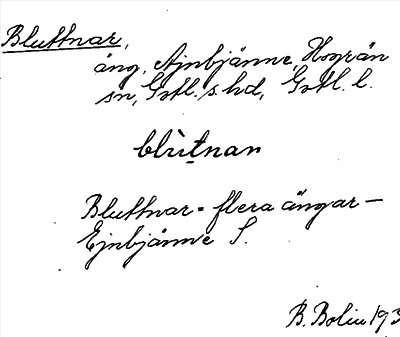 Bluttnar,
äng, Ajnbjänne, Hogrän
sn, Gotl. s. hd, Gotl. l.
blùt̲nar
Bluttnar = flera ängar —
Ejnbjänne S.
B. Bolin 193